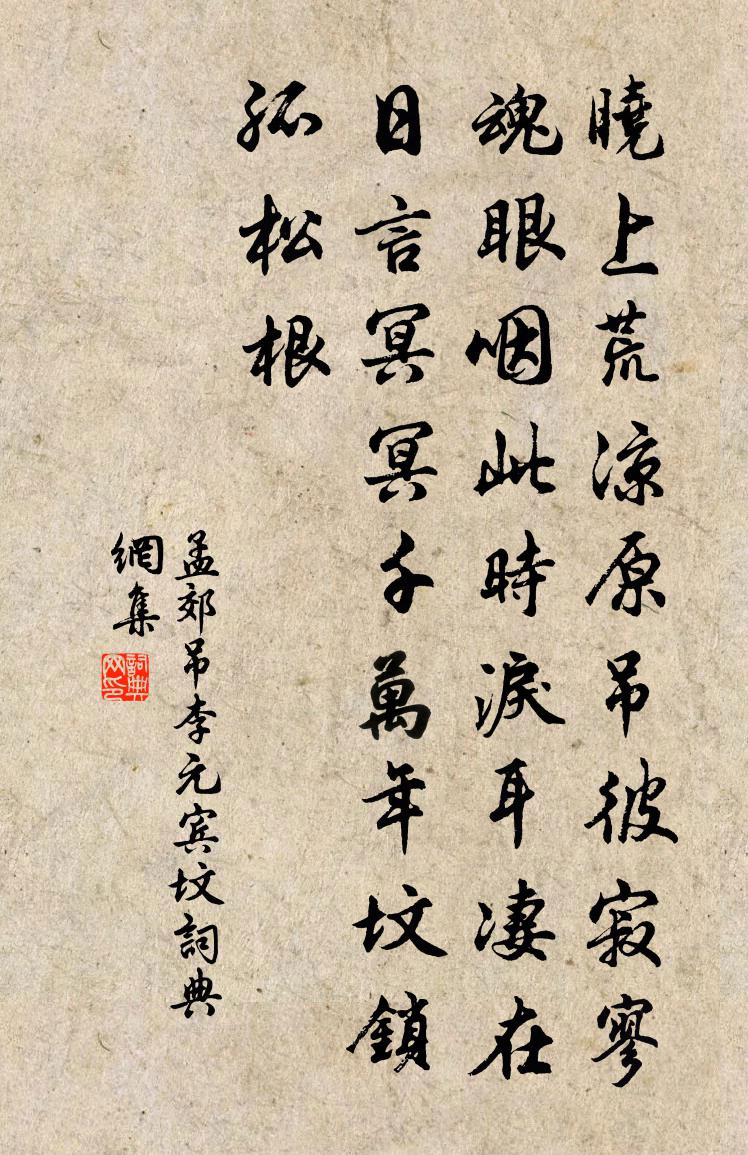 曉上荒涼原吊彼寂寥
魂眼咽此時淚耳凄在
日言冥冥千萬年墳鎖
孤松根
孟郊吊李元賓墳詞典
網集
詞典網印